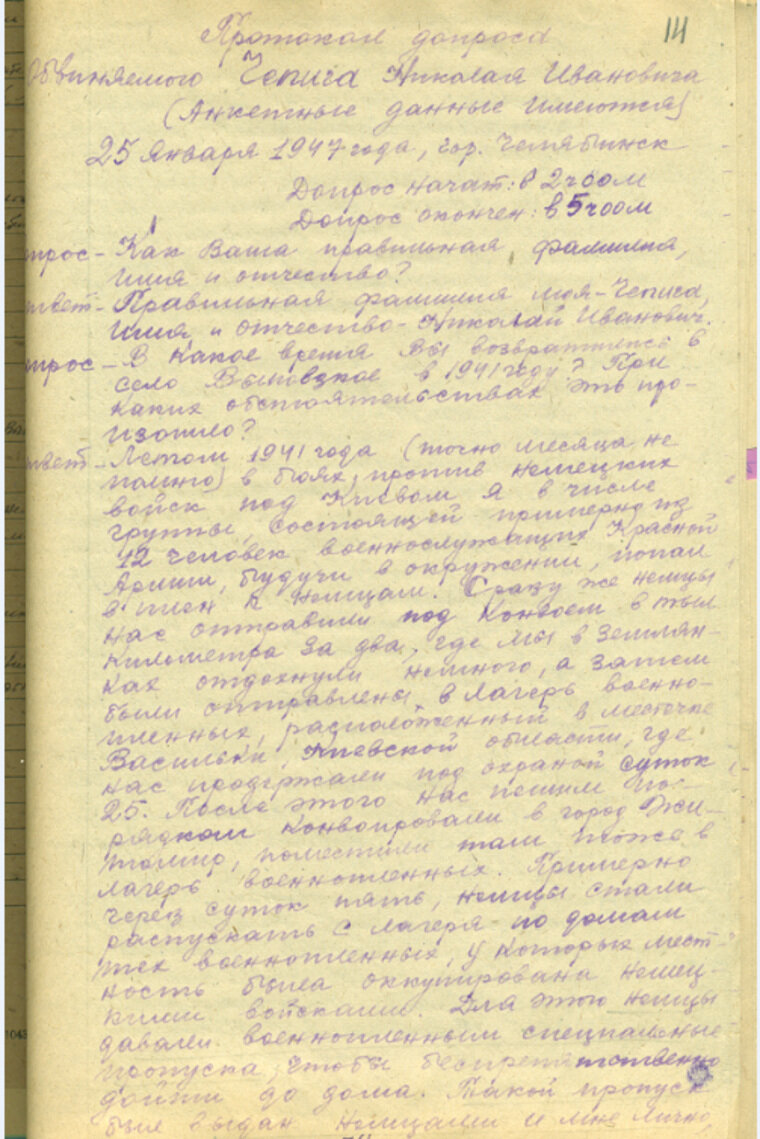 14
Протокол допроса
Обвиняемого Чепига Николая Ивановича
(Анкетные данные имеются)
25 января 1947 года, гор. Челябинск
Допрос начат: в 2ч00м
Допрос окончен: в 5ч00м
прос- Как Ваша правильная фамилия,
имя и отчество?
твет- Правильная фамилия моя - Чепига,
имя и отчество - Николай Иванович.
прос- В какое время Вы возвратились в
село в 1941 году? При
каких обстоятельствах это про-
изошло?
твет- Летом 1941 года (точно месяца не
помню) в боях против немецких
войск под Киевом я в числе
группы, состоящей примерно из
12 человек военнослужащих Красной
Армии, будучи в окружении, попал
в плен к немцам. Сразу же немцы
нас отправили под конвоем в тыл
километра за два, где мы в землян-
ках отдохнули немного, а затем
были отправлены в лагерь военно-
пленных, расположенный в местечке
Васильки, Киевской области, где
нас продержали под охраной суток
25. После этого нас пешим по-
рядком конвоировали в город Жи-
томир, поместили там тоже в
лагерь военнопленных. Примерно
через суток пять, немцы стали
распускать с лагеря по домам
тех военнопленных, у которых мест-
ность была оккупирована немец-
кими войсками. Для этого немцы
давали военнопленным специальные
пропуска, чтобы беспрепятственно
дойти до дома. Такой пропуск
был выдан немцами и мне лично,